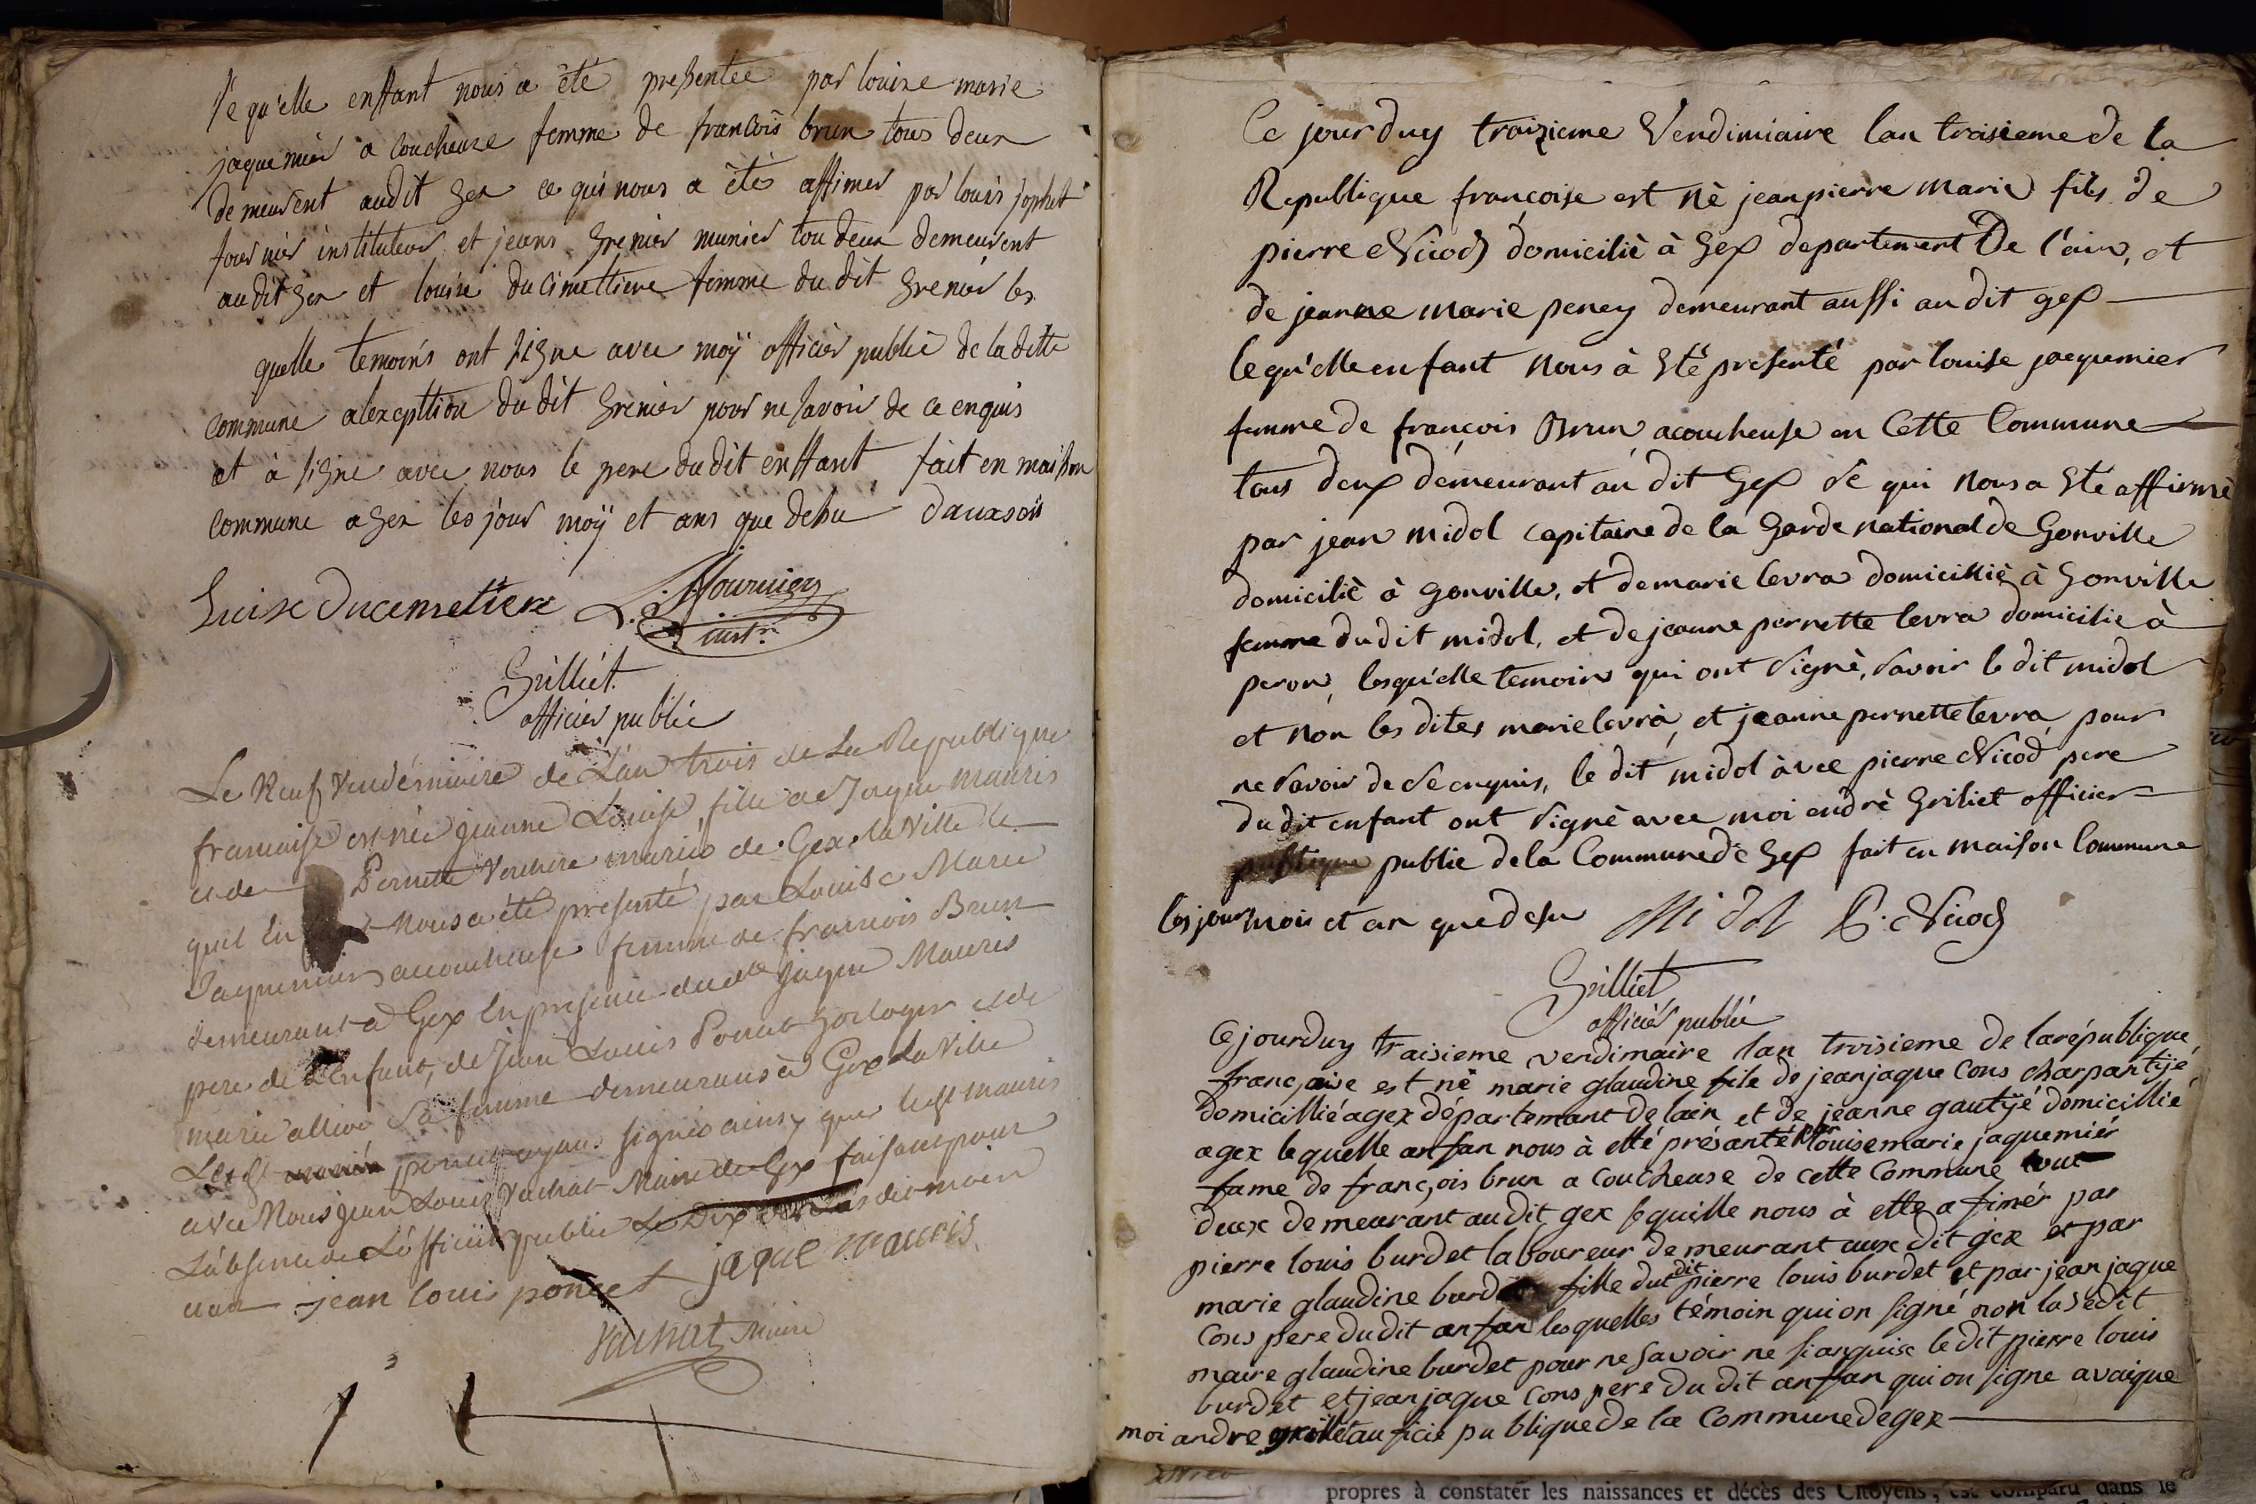 le qu'elle enffant nous a été presentee par louise marie
jaquemier a coucheuse femme de francois brun tous deux
demeurent audit Gex ce qui nous a été affimer par louis
fournier instituteur et jeans Grenier munier tou deux demeurent
audit Gex et louise ducimettiere femme du dit Grenier les
quelle temoins ont signe avec moÿ officier public de la ditte
commune alexcepttion du dit Grenier pour ne savoir de ce enquis
et à signe avec nous le pere du dit enffant fait en maison
commune a Gex les jour moÿ et ans que desu
Luise Ducemetiere L. Fournier
instr.
Grilliet
officier public
Le Neuf Vendémiaire de L'an trois de La Republique
francaise est née jeanne Louise fille de Jaque Mauris
et de Pernette mariés de Gex la Ville le
quel Enfant Nous a été presenté par Louise Marie
Jaquemier accoucheuse femme de francois Brun
demeurant a Gex En presence dudt Jaque Mauris
pere de L'Enfant, de Jean Louis Poncet horloger et de
marie sa femme demeurans à Gex La Ville
Ledt poncet ayans signés ainsy que ledt Mauris
avec Nous Jean Louis Vachat Maire de Gex faisant pour
L'absence de L'officier public Le Dix
jean loui poncet jaque mauris
Vachat Maire
Ce jourduy traizieme Vendimiaire lan troisieme de la
Republique françoise est Nè jeanpierre marie fils de
pierre Nicod domiciliè à Gex departement De l'ain, et
de jeanne marie peney demeurant aussi audit gex
lequ'elle enfant Nous à Eté presenté par louise jacquemier
femme de françois Brun acoucheuse en Cette Commune
tous deux demeurant au dit Gex Se qui Nous a Eté affirmé
par jean midol capitaine de la Garde national de Gonville
domiciliè à Gonville, et demarie levra domicilliè à Gonville
femme du dit midol, et de jeanne pernette levra domicilie à
peron, lesqu'elle temoins qui ont Signè, Savoir le dit midol
et non les dites marie levrà, et jeanne pernette levra, pour
ne Savoir de Sè enquis, le dit midol àvec pierre Nicod pere
du dit enfant ont Signè avec moi andrè Griliet officier
publique public de la Commune de Gex fait en maison Commune
les jour mois et an que desu Midol P. Nicod
Grilliet
officier public
Cejourduy traisieme vendimaire lan troisieme de larépublique
française est né marie glaudine file de jeanjaque Cons charpantijé
domicillié a gex département de lain et de jeanne gautijé domicillié
a gex lequelle anfan nous à etté présanté par louisemarie jaquemier
fame de françois brun a coucheuse de cette Commune tout
deux demeurant audit gex sequille nous à ette afimér par
pierre louis burdet laboureur demeurant aux dit gex et par
marie glaudine burdet fille dut dit pierre louis burdet et par jean jaque
Cons pere du dit anfan lesquelles témoin qui on signé non la sedit
maire glaudine burdet pour ne savoir ne si anquise le dit pierre louis
burdet et jeanjaque Cons pere du dit anfan qui on signe avaique
moi andre grilliet auficié publique de la Commune de gex
propres à constater les naissances et décès des Citoyens, est comparu dans le